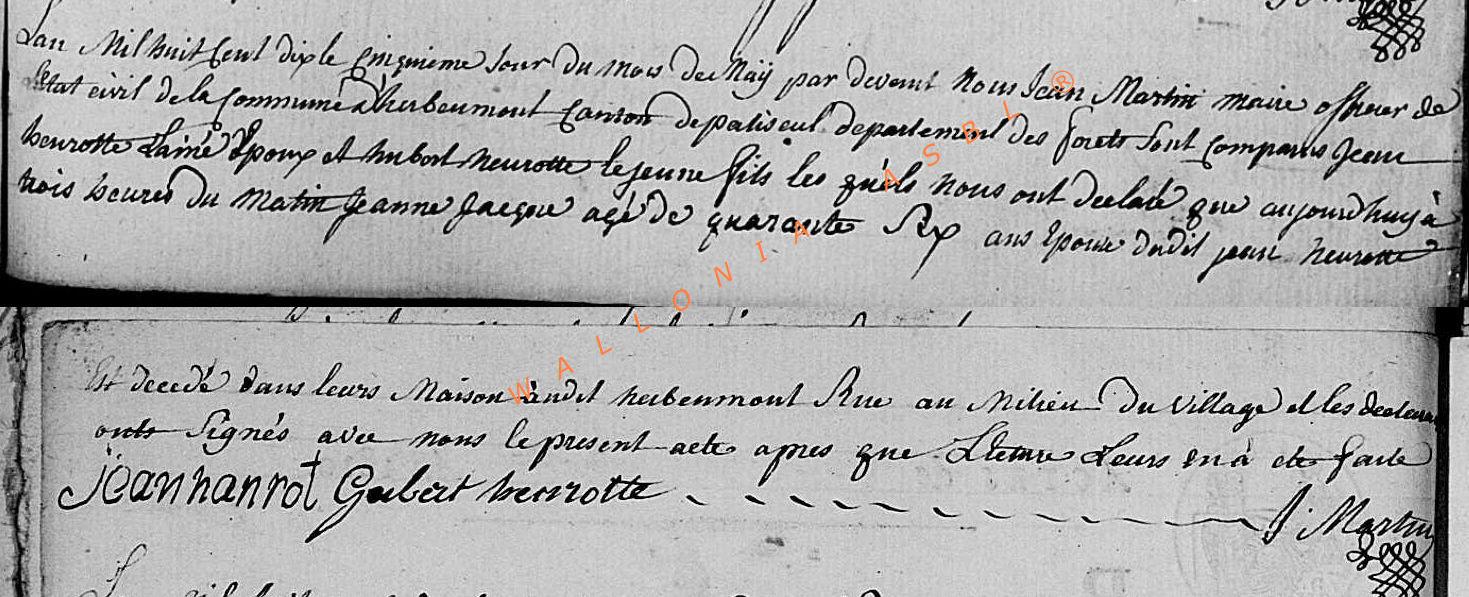 Lan Mil huit Cent dix le Cinquieme Jour du mois de Maÿ par devant Nous Jean Martin maire officier de
letat civil de la Commune d'herbeumont Canton de paliseul departement des forets Sont Comparus Jean
heurotte Lainé Epoux et hubert heurotte le jeune fils les quels nous ont declaré que aujourdhuy à
trois heures du Matin Jeanne Jacque agé de quarante Six ans Epouse dudit jean heurotte
Est decedé dans leurs Maison audit herbeumont Rue au Milieu Du village et les
onts Signés avec nous le present acte apres que Lecture Leurs en à ete faite
jean hanrot Gubert heurotte J. Martin
WALLONIA ASBL ®